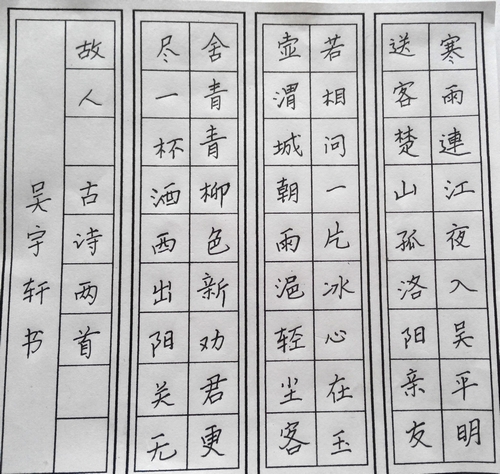 寒雨連江夜入吴平明
送客楚山孤洛阳亲友
若相问一片冰心在玉
壶渭城朝雨浥轻尘客
舍青青柳色新劝君更
尽一杯酒西出阳关无
故人 古诗两首
吴宇轩书